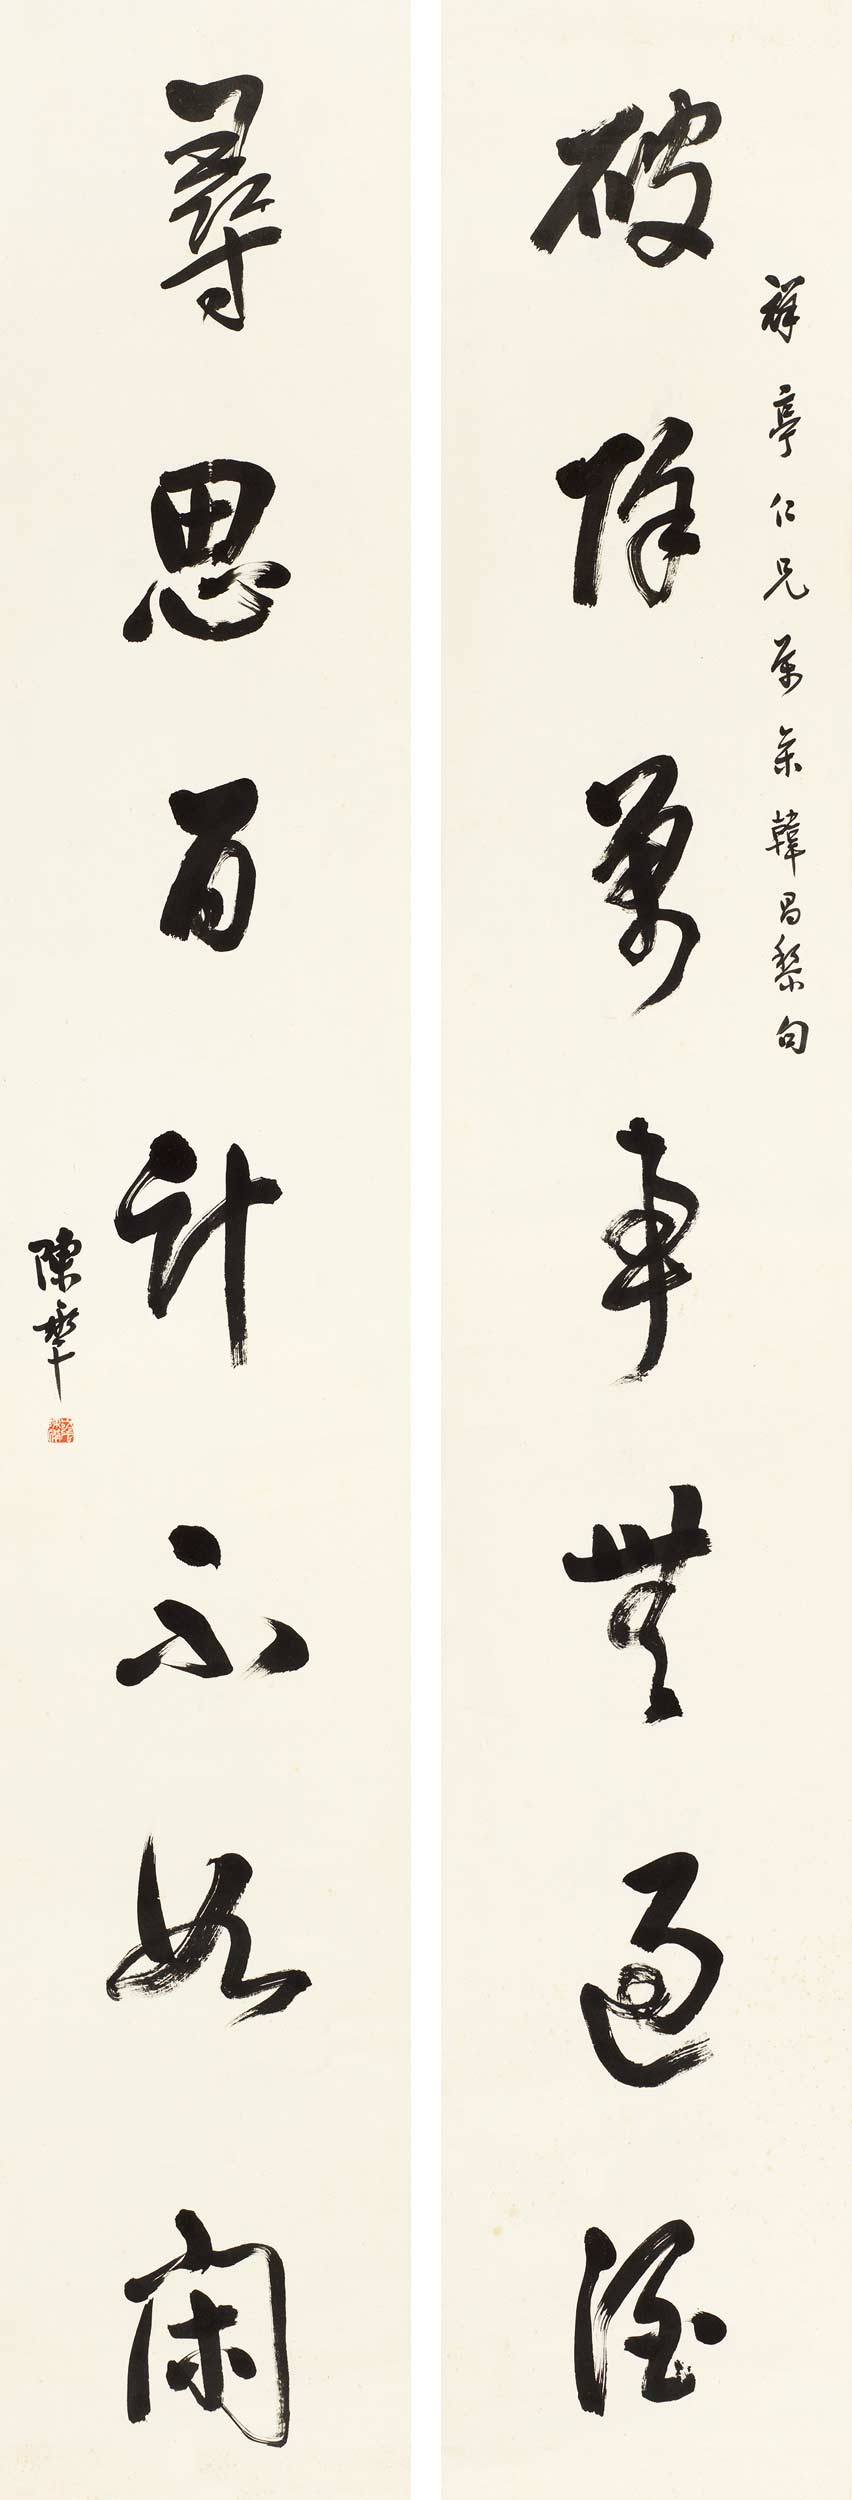 祥亭仁兄屬集韓昌黎句
破除萬事無過酒
尋思百計不如閑
陳